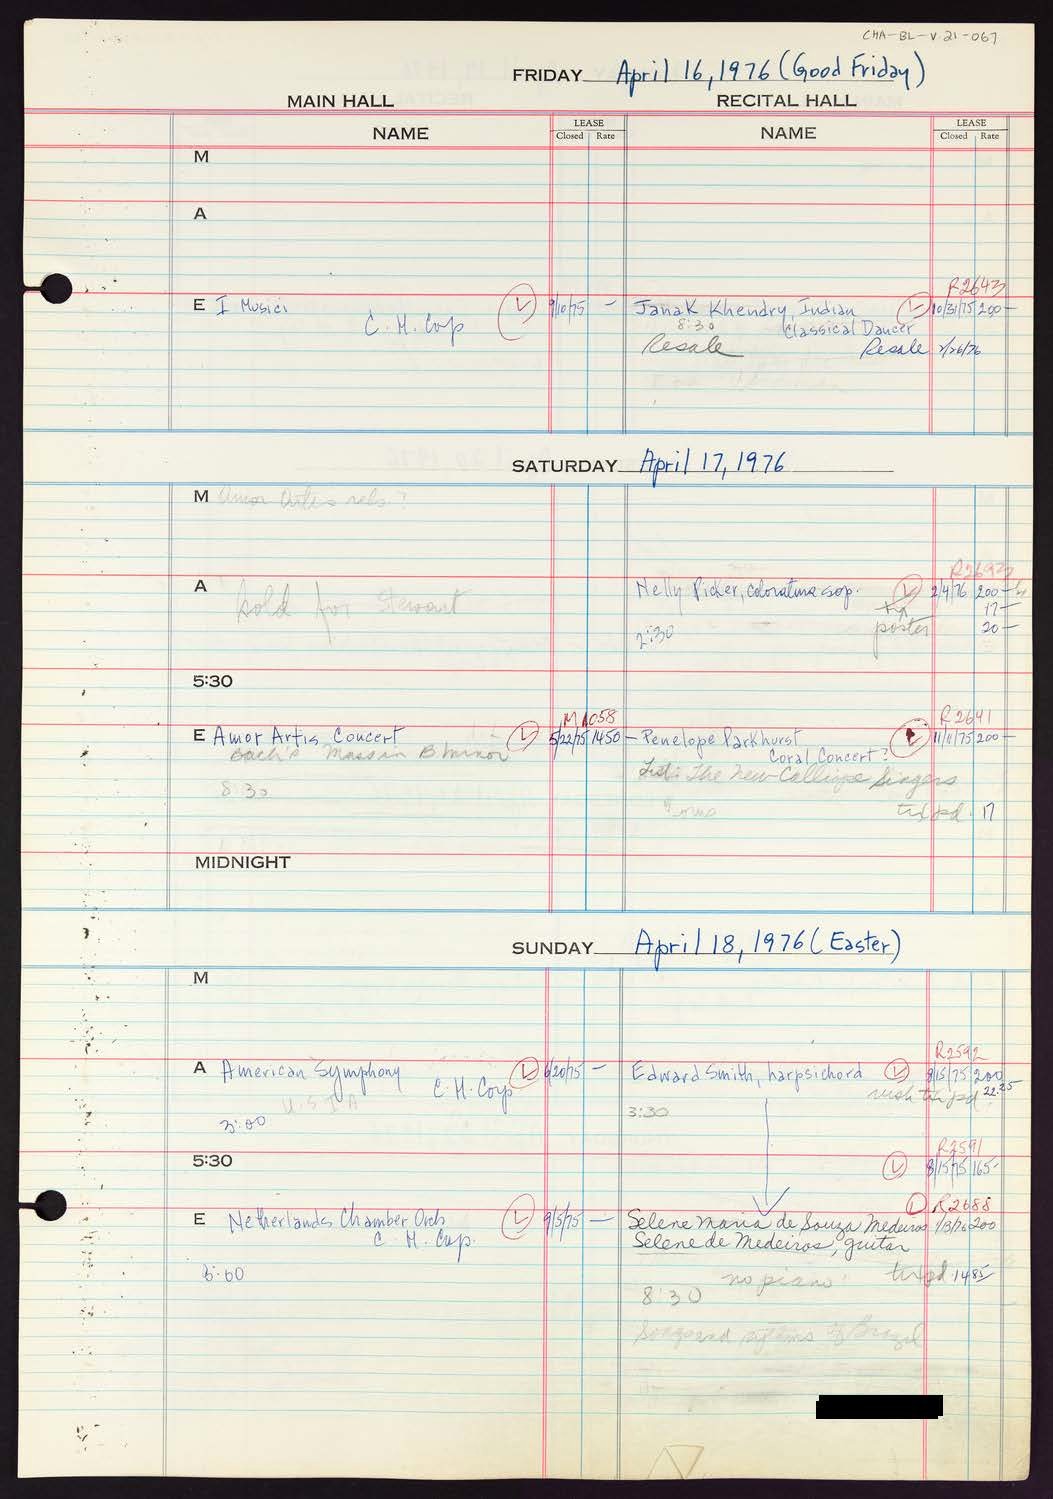 CHA-BL-V.21-067
FRIDAY April 16, 1976 (Good Friday)
MAIN HALL RECITAL HALL
NAME LEASE Closed Rate NAME LEASE Closed Rate
M
A
R2643
E I Musici L 9/10/75 — Janak Khendry, Indian L 10/31/75 200—
C. H. Corp 8:30 Classical Dancer
Resale Resale 2/26/76
SATURDAY April 17, 1976
M Amor Artis rehs?
R2693
A Nelly Picker, coloratura sop. L 2/4/76 200—
hold for Stewart 17—
2:30 poster 20—
5:30
M 1058 R2641
E Amor Artis Concert L 5/22/75 1450— Penelope Parkhurst L 11/11/75 200—
Bach's Mass in B minor Coral Concert?
List: The New Calliope Singers
8:30
tix pd. 17
MIDNIGHT
SUNDAY April 18, 1976 (Easter)
M
R2592
A American Symphony L 6/20/75 — Edward Smith, harpsichord L 8/15/75 200
C. H. Corp tix pd 22.25
USIA
3:00 3:30
R2591
5:30 L 8/15/75 165-
L R2688
E Netherlands Chamber Orch L 9/5/75 — Selene Maria de Souza Medeiros 1/3/76 200
C. H. Corp. Selene de Medeiros, guitar
8:00 no piano tix pd 1485
8:30
of Brazil